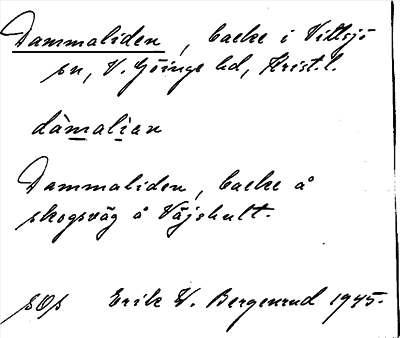 Dammaliden, backe i Vittsjö
sn, V. Göinge hd, Krist.l.
dàmalian
Dammaliden, backe å
skogsväg å Väjshult.
sOs Erik W. Bergenrud 1945.